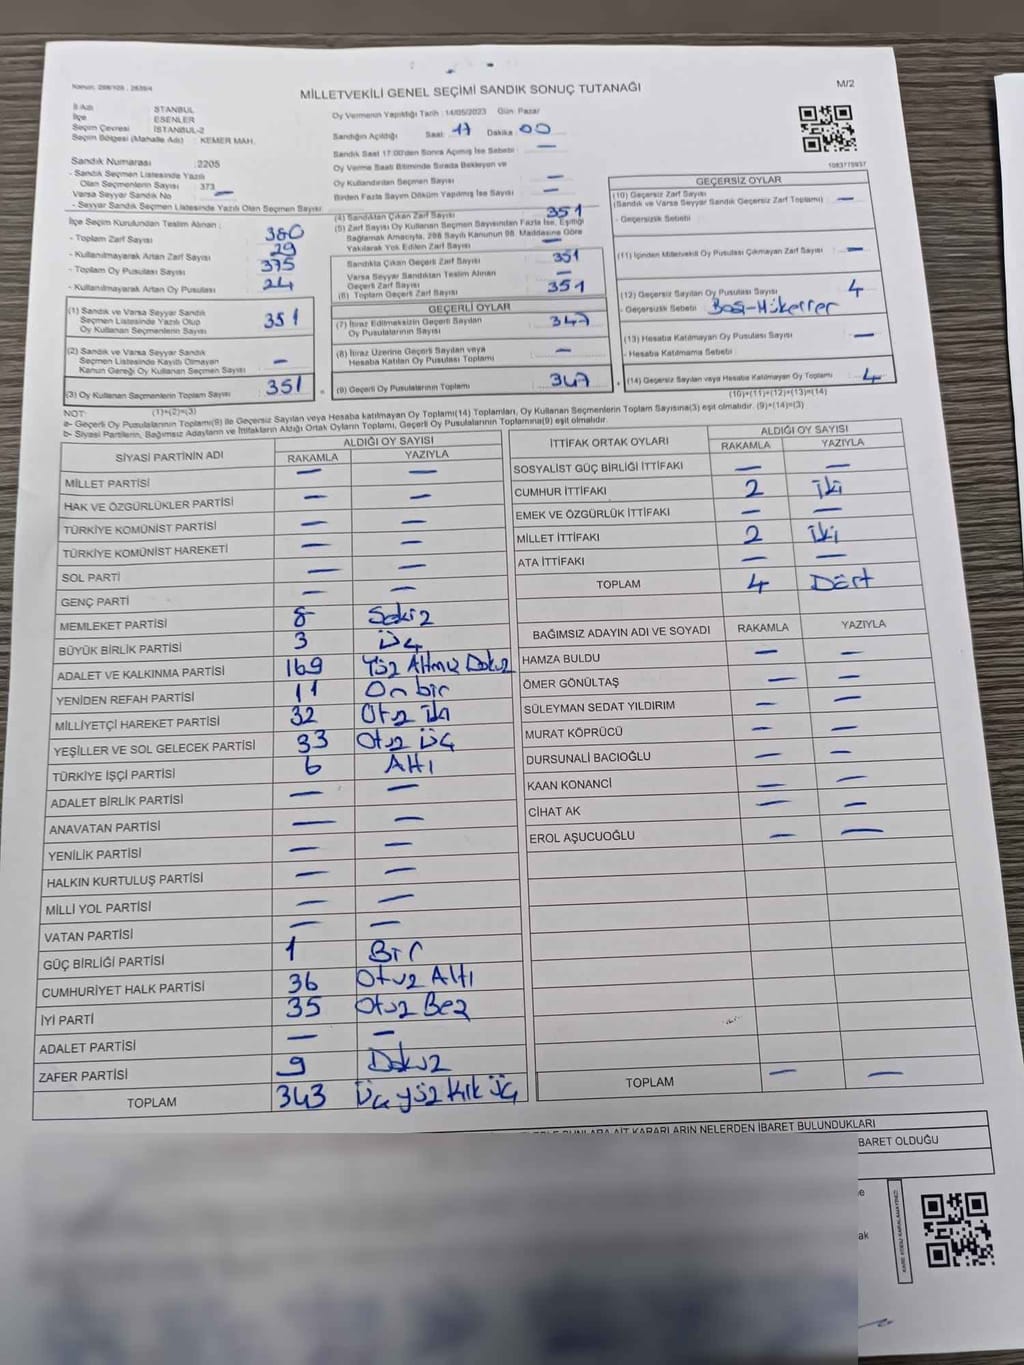 MİLLETVEKİLİ GENEL SEÇİMİ SANDIK SONUÇ TUTANAĞI
M/2
İl Adı İSTANBUL
İlçe ESENLER
Seçim Çevresi İSTANBUL-2
Seçim Bölgesi (Mahalle Adı) : KEMER MAH.
Sandık Numarası : 2205
- Sandık Seçmen Listesinde Yazılı
Olan Seçmenlerin Sayısı 373
Varsa Seyyar Sandık No —
- Seyyar Sandık Seçmen Listesinde Yazılı Olan Seçmen Sayısı
Oy Vermenin Yapıldığı Tarih : 14/05/2023 Gün: Pazar
Sandığın Açıldığı Saat: 17 Dakika: 00
Sandık Saat 17:00'den Sonra Açılmış İse Sebebi : —
Oy Verme Saati Bitiminde Sırada Bekleyen ve
Oy Kullandırılan Seçmen Sayısı —
Birden Fazla Sayım Döküm Yapılmış İse Sayısı —
1083775937
İlçe Seçim Kurulundan Teslim Alınan :
- Toplam Zarf Sayısı 380
- Kullanılmayarak Artan Zarf Sayısı 29
- Toplam Oy Pusulası Sayısı 375
- Kullanılmayarak Artan Oy Pusulası 24
(1) Sandık ve Varsa Seyyar Sandık
Seçmen Listesinde Yazılı Olup
Oy Kullanan Seçmenlerin Sayısı 351
(2) Sandık ve Varsa Seyyar Sandık
Seçmen Listesinde Kayıtlı Olmayan
Kanun Gereği Oy Kullanan Seçmen Sayısı —
(3) Oy Kullanan Seçmenlerin Toplam Sayısı 351
(1)+(2)=(3)
(4) Sandıktan Çıkan Zarf Sayısı 351
(5) Zarf Sayısı Oy Kullanan Seçmen Sayısından Fazla İse, Eşitliği
Sağlamak Amacıyla, 298 Sayılı Kanunun 98. Maddesine Göre
Yakılarak Yok Edilen Zarf Sayısı —
Sandıkta Çıkan Geçerli Zarf Sayısı 351
Varsa Seyyar Sandıktan Teslim Alınan
Geçerli Zarf Sayısı —
(6) Toplam Geçerli Zarf Sayısı 351
GEÇERLİ OYLAR
(7) İtiraz Edilmeksizin Geçerli Sayılan
Oy Pusulalarının Sayısı 347
(8) İtiraz Üzerine Geçerli Sayılan veya
Hesaba Katılan Oy Pusulası Toplamı —
(9) Geçerli Oy Pusulalarının Toplamı 347
GEÇERSİZ OYLAR
(10) Geçersiz Zarf Sayısı
(Sandık ve Varsa Seyyar Sandık Geçersiz Zarf Toplamı) —
- Geçersizlik Sebebi :
(11) İçinden Milletvekili Oy Pusulası Çıkmayan Zarf Sayısı —
(12) Geçersiz Sayılan Oy Pusulası Sayısı 4
- Geçersizlik Sebebi Boş-Mükerrer
(13) Hesaba Katılmayan Oy Pusulası Sayısı —
- Hesaba Katılmama Sebebi :
(14) Geçersiz Sayılan veya Hesaba Katılmayan Oy Toplamı 4
(10)+(11)+(12)+(13)=(14)
NOT:
a- Geçerli Oy Pusulalarının Toplamı(9) ile Geçersiz Sayılan veya Hesaba katılmayan Oy Toplamı(14) Toplamları, Oy Kullanan Seçmenlerin Toplam Sayısına(3) eşit olmalıdır. (9)+(14)=(3)
b- Siyasi Partilerin, Bağımsız Adayların ve İttifakların Aldığı Ortak Oyların Toplamı, Geçerli Oy Pusulalarının Toplamına(9) eşit olmalıdır.
SİYASİ PARTİNİN ADI ALDIĞI OY SAYISI
RAKAMLA YAZIYLA
MİLLET PARTİSİ — —
HAK VE ÖZGÜRLÜKLER PARTİSİ — —
TÜRKİYE KOMÜNİST PARTİSİ — —
TÜRKİYE KOMÜNİST HAREKETİ — —
SOL PARTİ — —
GENÇ PARTİ — —
MEMLEKET PARTİSİ 8 Sekiz
BÜYÜK BİRLİK PARTİSİ 3 Üç
ADALET VE KALKINMA PARTİSİ 169 Yüz Altmış Dokuz
YENİDEN REFAH PARTİSİ 11 On bir
MİLLİYETÇİ HAREKET PARTİSİ 32 Otuz iki
YEŞİLLER VE SOL GELECEK PARTİSİ 33 Otuz üç
TÜRKİYE İŞÇİ PARTİSİ 6 Altı
ADALET BİRLİK PARTİSİ — —
ANAVATAN PARTİSİ — —
YENİLİK PARTİSİ — —
HALKIN KURTULUŞ PARTİSİ — —
MİLLİ YOL PARTİSİ — —
VATAN PARTİSİ — —
GÜÇ BİRLİĞİ PARTİSİ 1 Bir
CUMHURİYET HALK PARTİSİ 36 Otuz Altı
İYİ PARTİ 35 Otuz Beş
ADALET PARTİSİ — —
ZAFER PARTİSİ 9 Dokuz
TOPLAM 343 Üç yüz Kırk üç
İTTİFAK ORTAK OYLARI ALDIĞI OY SAYISI
RAKAMLA YAZIYLA
SOSYALİST GÜÇ BİRLİĞİ İTTİFAKI — —
CUMHUR İTTİFAKI 2 iki
EMEK VE ÖZGÜRLÜK İTTİFAKI — —
MİLLET İTTİFAKI 2 iki
ATA İTTİFAKI — —
TOPLAM 4 Dört
BAĞIMSIZ ADAYIN ADI VE SOYADI RAKAMLA YAZIYLA
HAMZA BULDU — —
ÖMER GÖNÜLTAŞ — —
SÜLEYMAN SEDAT YILDIRIM — —
MURAT KÖPRÜCÜ — —
DURSUNALİ BACIOĞLU — —
KAAN KONANCİ — —
CİHAT AK — —
EROL AŞUCUOĞLU — —
TOPLAM — —
BUNLARA AİT KARARLARIN NELERDEN İBARET BULUNDUKLARI
BARET OLDUĞU